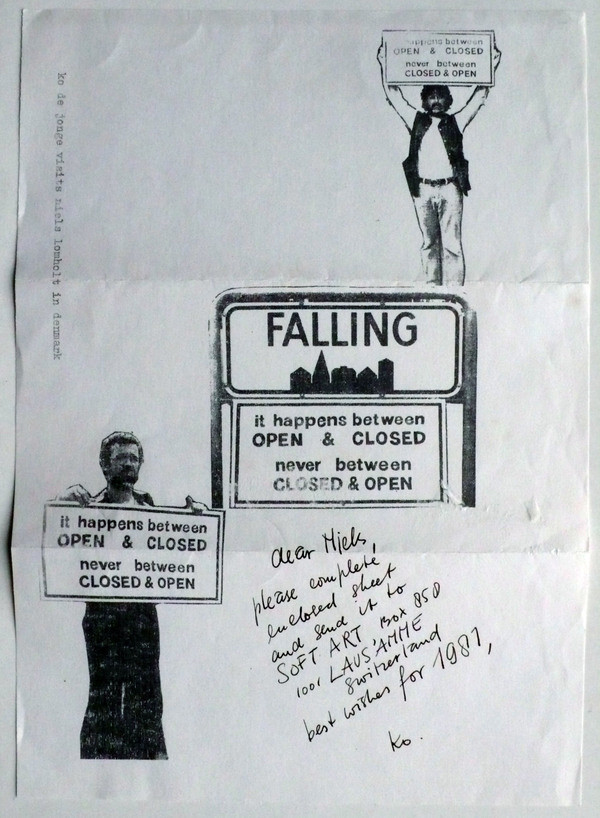 ko de jonge visits niels lomholt in denmark
happens between
OPEN & CLOSED
never between
CLOSED & OPEN
FALLING
it happens between
OPEN & CLOSED
never between
CLOSED & OPEN
it happens between
OPEN & CLOSED
never between
CLOSED & OPEN
dear Niels,
please complete
enclosed sheet
and send it to
SOFT ART BOX 850
1001 LAUSANNE
Switzerland
best wishes for 1981,
Ko.